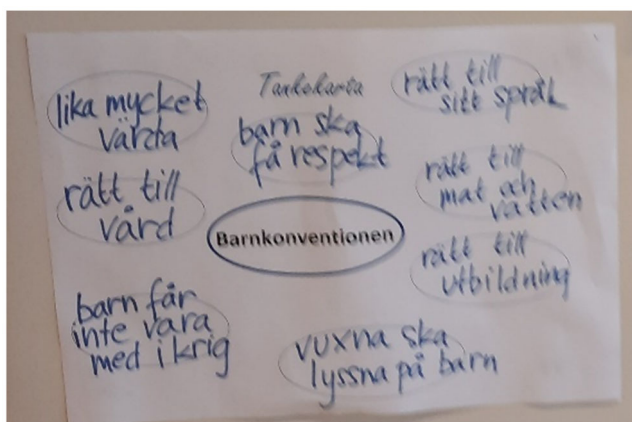 Tankekarta
lika mycket
värda
barn ska
få respekt
rätt till
sitt språk
rätt till
vård
Barnkonventionen
rätt till
mat och
vatten
rätt till
utbildning
barn får
inte vara
med i krig
vuxna ska
lyssna på barn